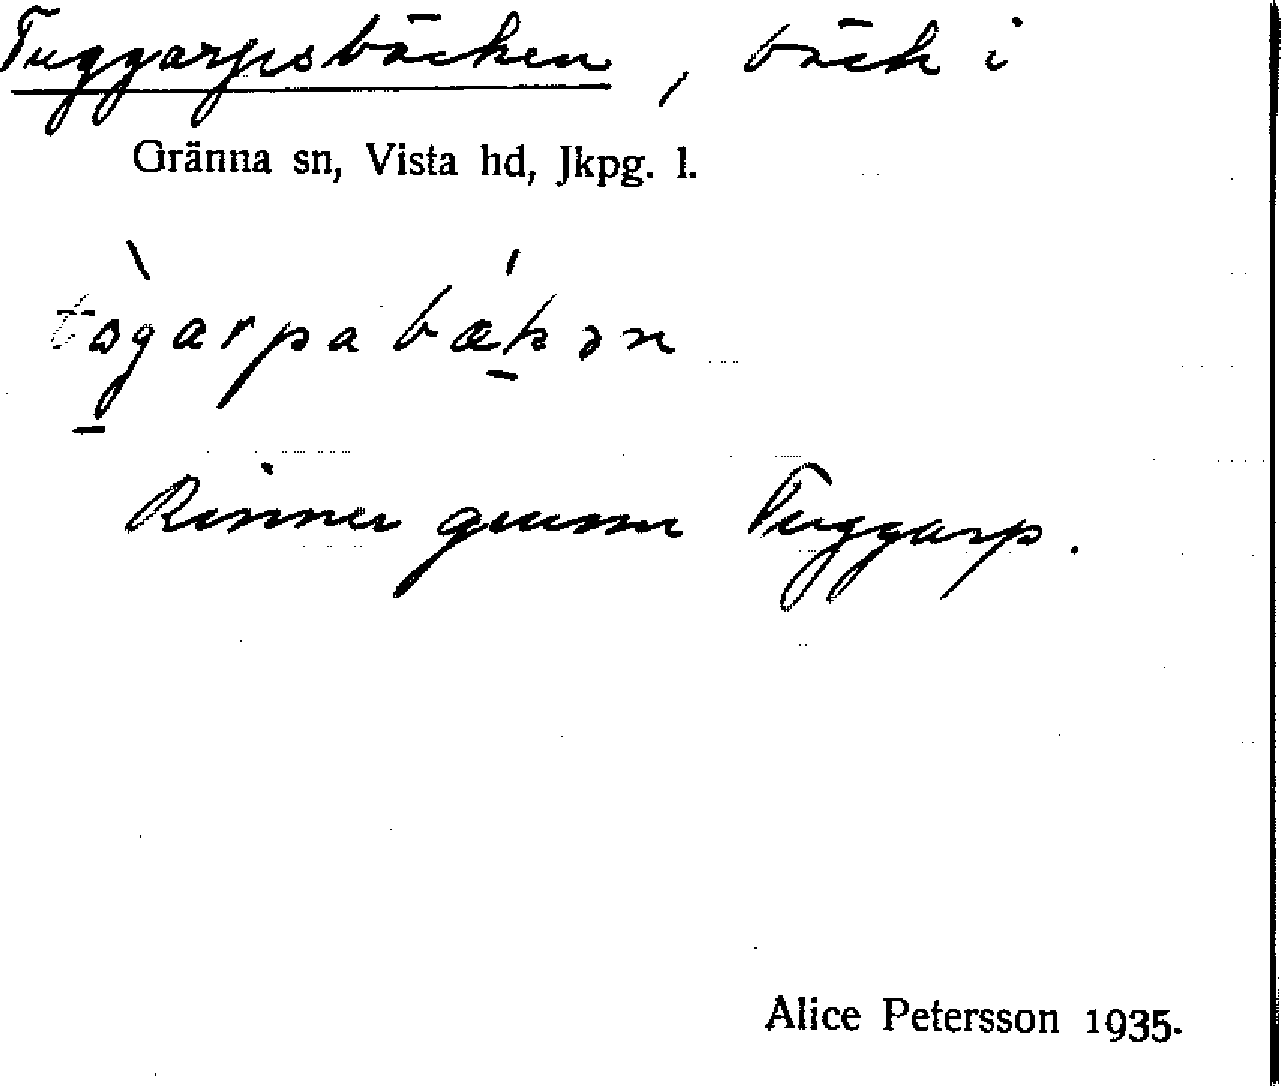 Tuggarpsbäcken, bäck i
Gränna sn, Vista hd, Jkpg. l.
tògarpabǽkən
Rinner genom Tuggarp.
Alice Petersson 1935.